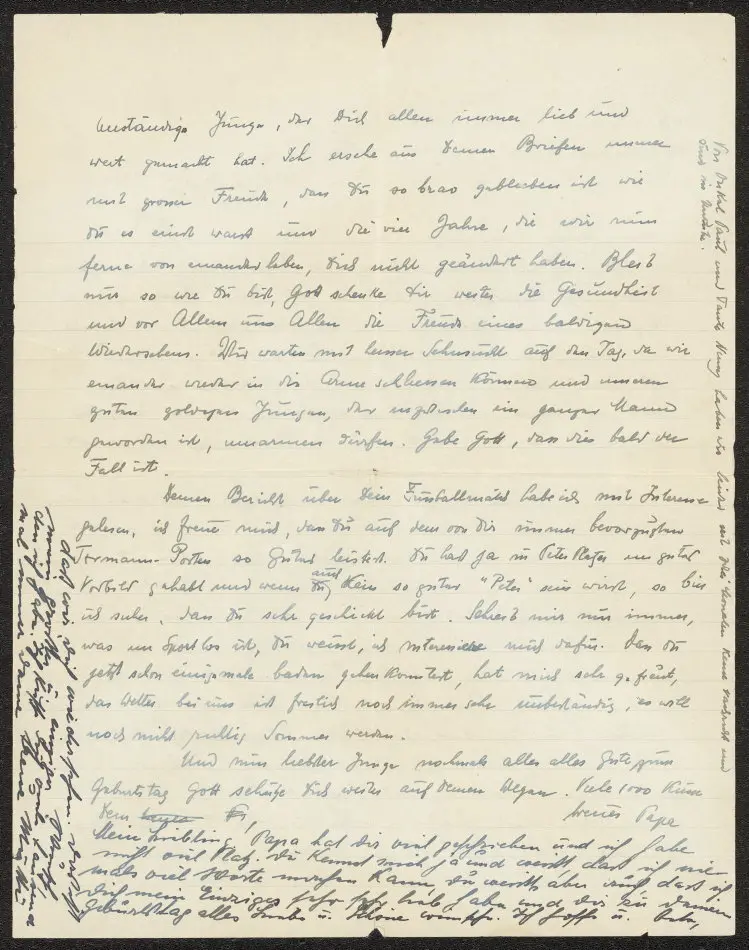 anständige Junge, der Dich allen immer lieb und
wert gemacht hat. Ich ersehe aus Deinen Briefen immer
mit grosser Freude, dass Du so brav geblieben bist wie
Du es einst warst und die vier Jahre, die wir nun
ferne von einander leben, Dich nicht geändert haben. Bleib
nur so wie Du bist, Gott schenke Dir weiter die Gesundheit
und vor Allem uns Allen die Freude eines baldigen
Wiedersehens. Wir warten mit heisser Sehnsucht auf den Tag, da wir
einander wieder in die Arme schliessen können und unseren
guten goldigen Jungen, der inzwischen ein ganzer Mann
geworden ist, umarmen dürfen. Gebe Gott, dass dies bald der
Fall ist.
Deinen Bericht über Dein Fussballmatch habe ich mit Interesse
gelesen, ich freue mich, dass Du auf dem von Dir immer bevorzugten
Tormann-Posten so Gutes leistest. Du hast ja in Peter Platzer ein gutes
Vorbild gehabt und wenn Du auch kein so guter "Peter" sein wirst, so bin
ich sicher, dass Du sehr geschickt bist. Schreib mir nur immer,
was im Sport los ist, Du weisst, ich interessiere mich dafür. Dass Du
jetzt schon einigemale baden gehen konntest, hat mich sehr gefreut,
das Wetter bei uns ist freilich noch immer sehr unbeständig, es will
noch nicht richtig Sommer werden.
Und nun liebster Junge nochmals alles alles Gute zum
Geburtstag Gott schütze Dich weiter auf Deinen Wegen. Viele 1000 Küsse
Dein
treuer Papa
Mein Liebling! Papa hat Dir viel geschrieben und ich habe
nicht viel Platz. Du kennst mich ja und weisst, dass ich nie
mals viel Worte machen kann, Du weisst aber auch dass ich
Dich mein Einziges sehr sehr lieb habe und Dir zu Deinem
Geburtstag alles Liebe u. Schöne wünsche. Ich hoffe u. bete,
dass wir Dich wiedersehen
mein
den ich habe. Ich
mal immer Deine Mutti
Von Onkel Paul und Tante haben wir seit Monaten keine Nachricht und
sind in